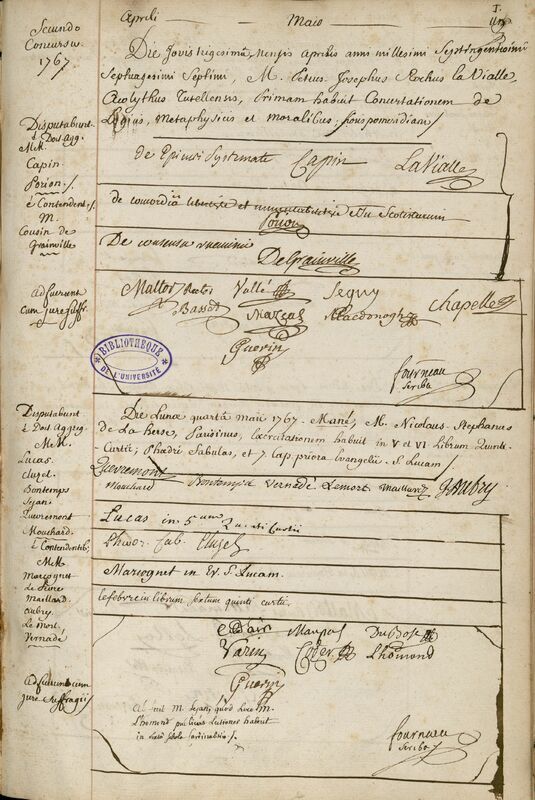 Secundo
Concursu
1767
Aprili — Maio — I.
Die Jovis trigesima mensis Aprilis anni millesimi Septingentesimi
Septuagesimi Septimi, M. Petrus Josephus Rochus la Vialle,
Acolythus Tutellensis, Primam habuit Concertationem de
Logicis, Metaphysicis et Moralibus
Disputabant
è Doct. Agg.
MM.
Capin
Porion
è Contendent.
M.
Cousin de
Grainville
de Epicuri Systemate Capin LaVialle
de concordiâ libertatis et
Porion
De consensu
DeGrainville
Adfuerunt
Cum jure suff.
Maltor Rector Vallé Seguy Chapelle
Basset Marçal Macdonogh
Guerin
fourneau
Scriba
BIBLIOTHEQUE
DE L'UNIVERSITÉ
Disputabant
è Doct. Aggreg
MM.
Lucas.
Cluzel.
Bontemps
Sejan
Quevremont
Mouchard.
è Contendentib;
MM
Marcognet
Le Febvre
Maillard.
Aubry.
Le Mort.
Vernadé
Die Lunæ quartâ maii 1767. Manè, M. Nicolaus Stephanus
de La Herse, Parisinus, Concertationem habuit in V et VI Librum Quinti-
Curtii; Phædri Fabulas, et 7 cap. priora Evangelii S. Lucam
Quevremont
Mouchard Bontemps Vernadé Lemort. Maillard J Aubry
Lucas in 5um Quinti Curtii
Phœd. Fab. Cluzel
Marcognet in Ev. S. Lucam.
Lefebvre in librum sextum quinti curtii.
Adfuerunt cum
jure Suffragii
Marçal DuBose
Varin Lhomond
Guerin
M. Sejan, quod hac M.
Lhomond publicas lectiones habuit
fourneau
Scriba